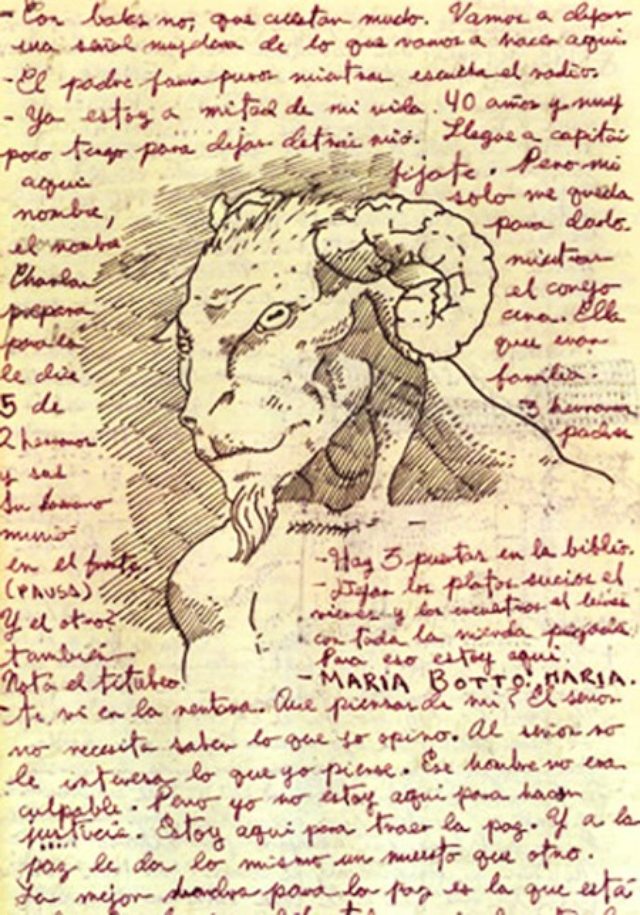 - Con balas no, que cuestan mucho. Vamos a dejar
una señal muy dura de lo que vamos a hacer aquí.
- El padre fuma puros mientras escucha el radio.
- Ya estoy a mitad de mi vida. 40 años y muy
poco tengo para dejar detrás mio. Llegue a capitán
aqui fijate. Pero mi
nombre, solo me queda
el nombre para darlo.
mientras
prepara el conejo
para la cena. Ella
le dice que eran
5 de familia.
2 hermanos 3 hermanas
y sus padres
Su hermano
murió
en el frente
(PAUSA)
Y el otro?
también
Nota el titubeo.
- Hay 3 puertas en la biblio.
- Dejan los platos sucios el
viernes y los encuentras el lunes
con toda la mierda pegada.
Para eso estoy aqui.
- MARIA BOTTO! MARIA.
- te vi en la Que piensas de mi? El señor
no necesita saber lo que yo opino. Al señor no
le interesa lo que yo piense. Ese hombre no era
culpable. Pero yo no estoy aqui para hacer
justicia. Estoy aqui para traer la paz. Y a la
paz le da lo mismo un muerto que otro.
La mejor para la paz es la que está